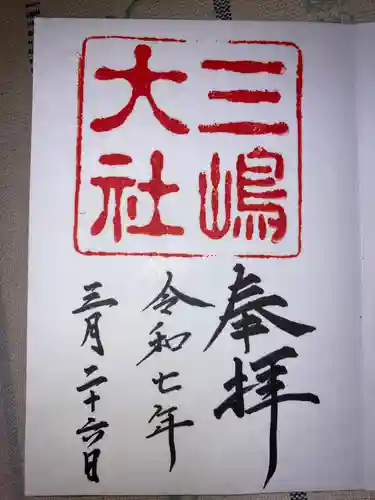 三嶋
大社
奉拝
令和七年
三月二十六日